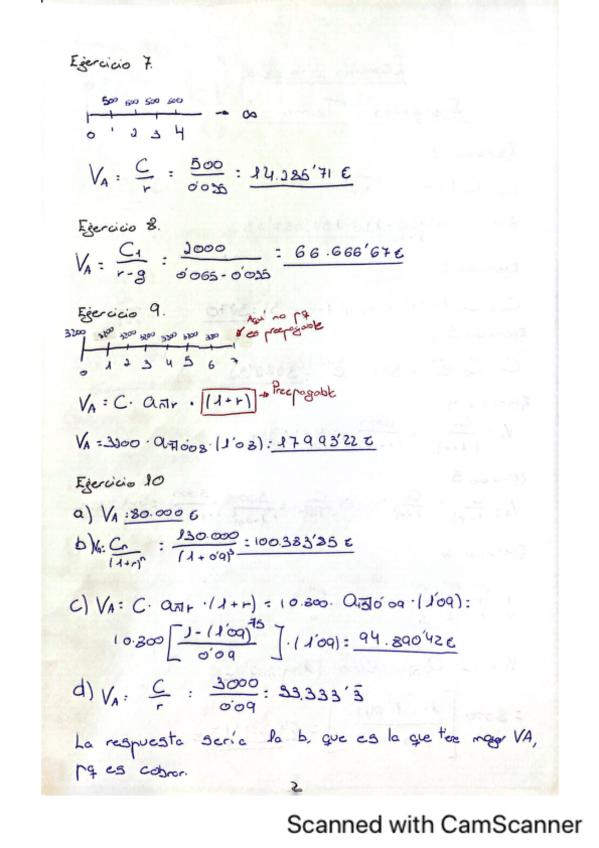 Ejercicio 7.
500 500 500 500
→ ∞
0 1 2 3 4
VA = C/r = 500/0'035 = 14.285'71 €
Ejercicio 8.
VA = C1/(r-g) = 2000/(0'065-0'035) = 66.666'67 €
Ejercicio 9.
Aquí no pq
es prepagable
3200 3200 3200 3200 3200 3200 320
0 1 2 3 4 5 6 7
VA = C · an¬r · (1+r) → Prepagable
VA = 3200 · a 0'03 · (1'03) = 17993'22 €
Ejercicio 10
a) VA = 80.000 €
b) VA: Cn/(1+r)^n = 130.000/(1+0'09)^3 = 100.383'85 €
c) VA = C · an¬r · (1+r) = 10.800 · a 0'09 · (1'09) =
10.800 [1-(1'09)^-15/0'09] · (1'09) = 94.890'42 €
d) VA = C/r = 3000/0'09 = 33.333'3
La respuesta sería la b, que es la que tiene mayor VA,
pq es cobrar.
2
Scanned with CamScanner